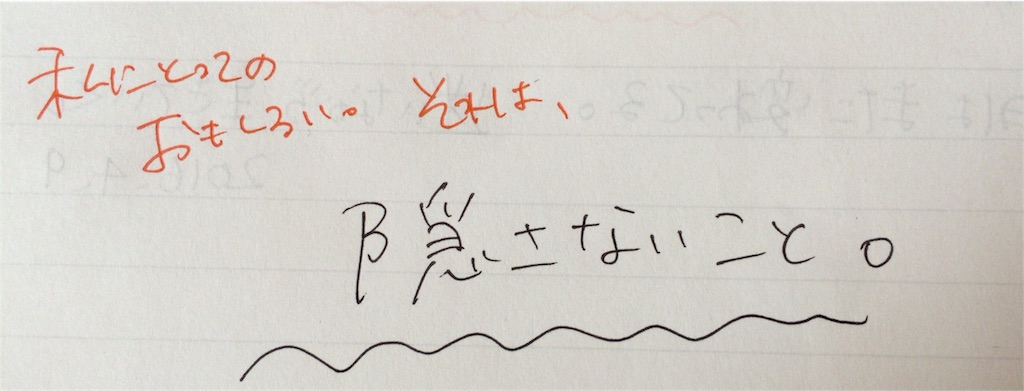 私にとっての
おもしろい。それは、
隠さないこと。